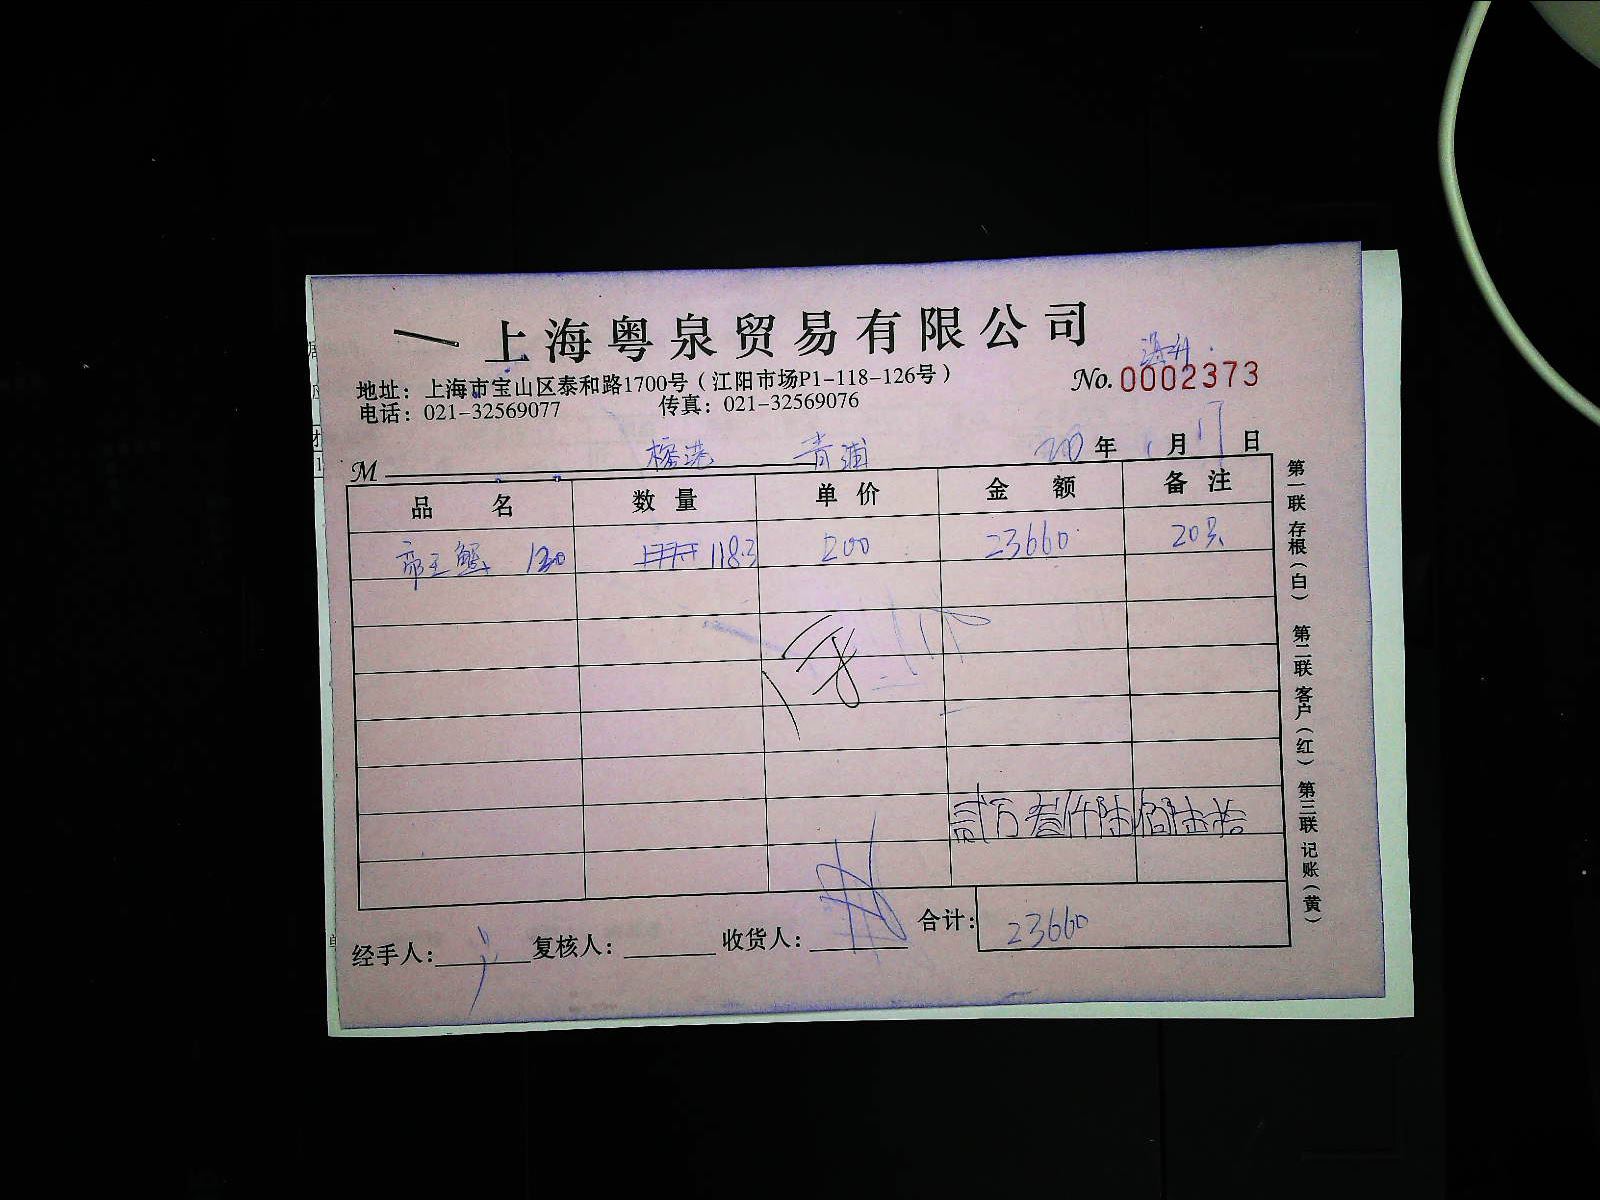 上海粤泉贸易有限公司
地址：上海市宝山区泰和路1700号（江阳市场P1-118-126号）
No. 0002373
电话：021-32569077 传真：021-32569076
M 青浦 年 月 17 日
品名 数量 单价 金额 备注
帝王蟹 120 118.3 200 23660 20只
贰万叁仟陆佰陆拾
经手人： 复核人： 收货人： 合计： 23660
第一联 存根（白） 第二联 客户（红） 第三联 记账（黄）